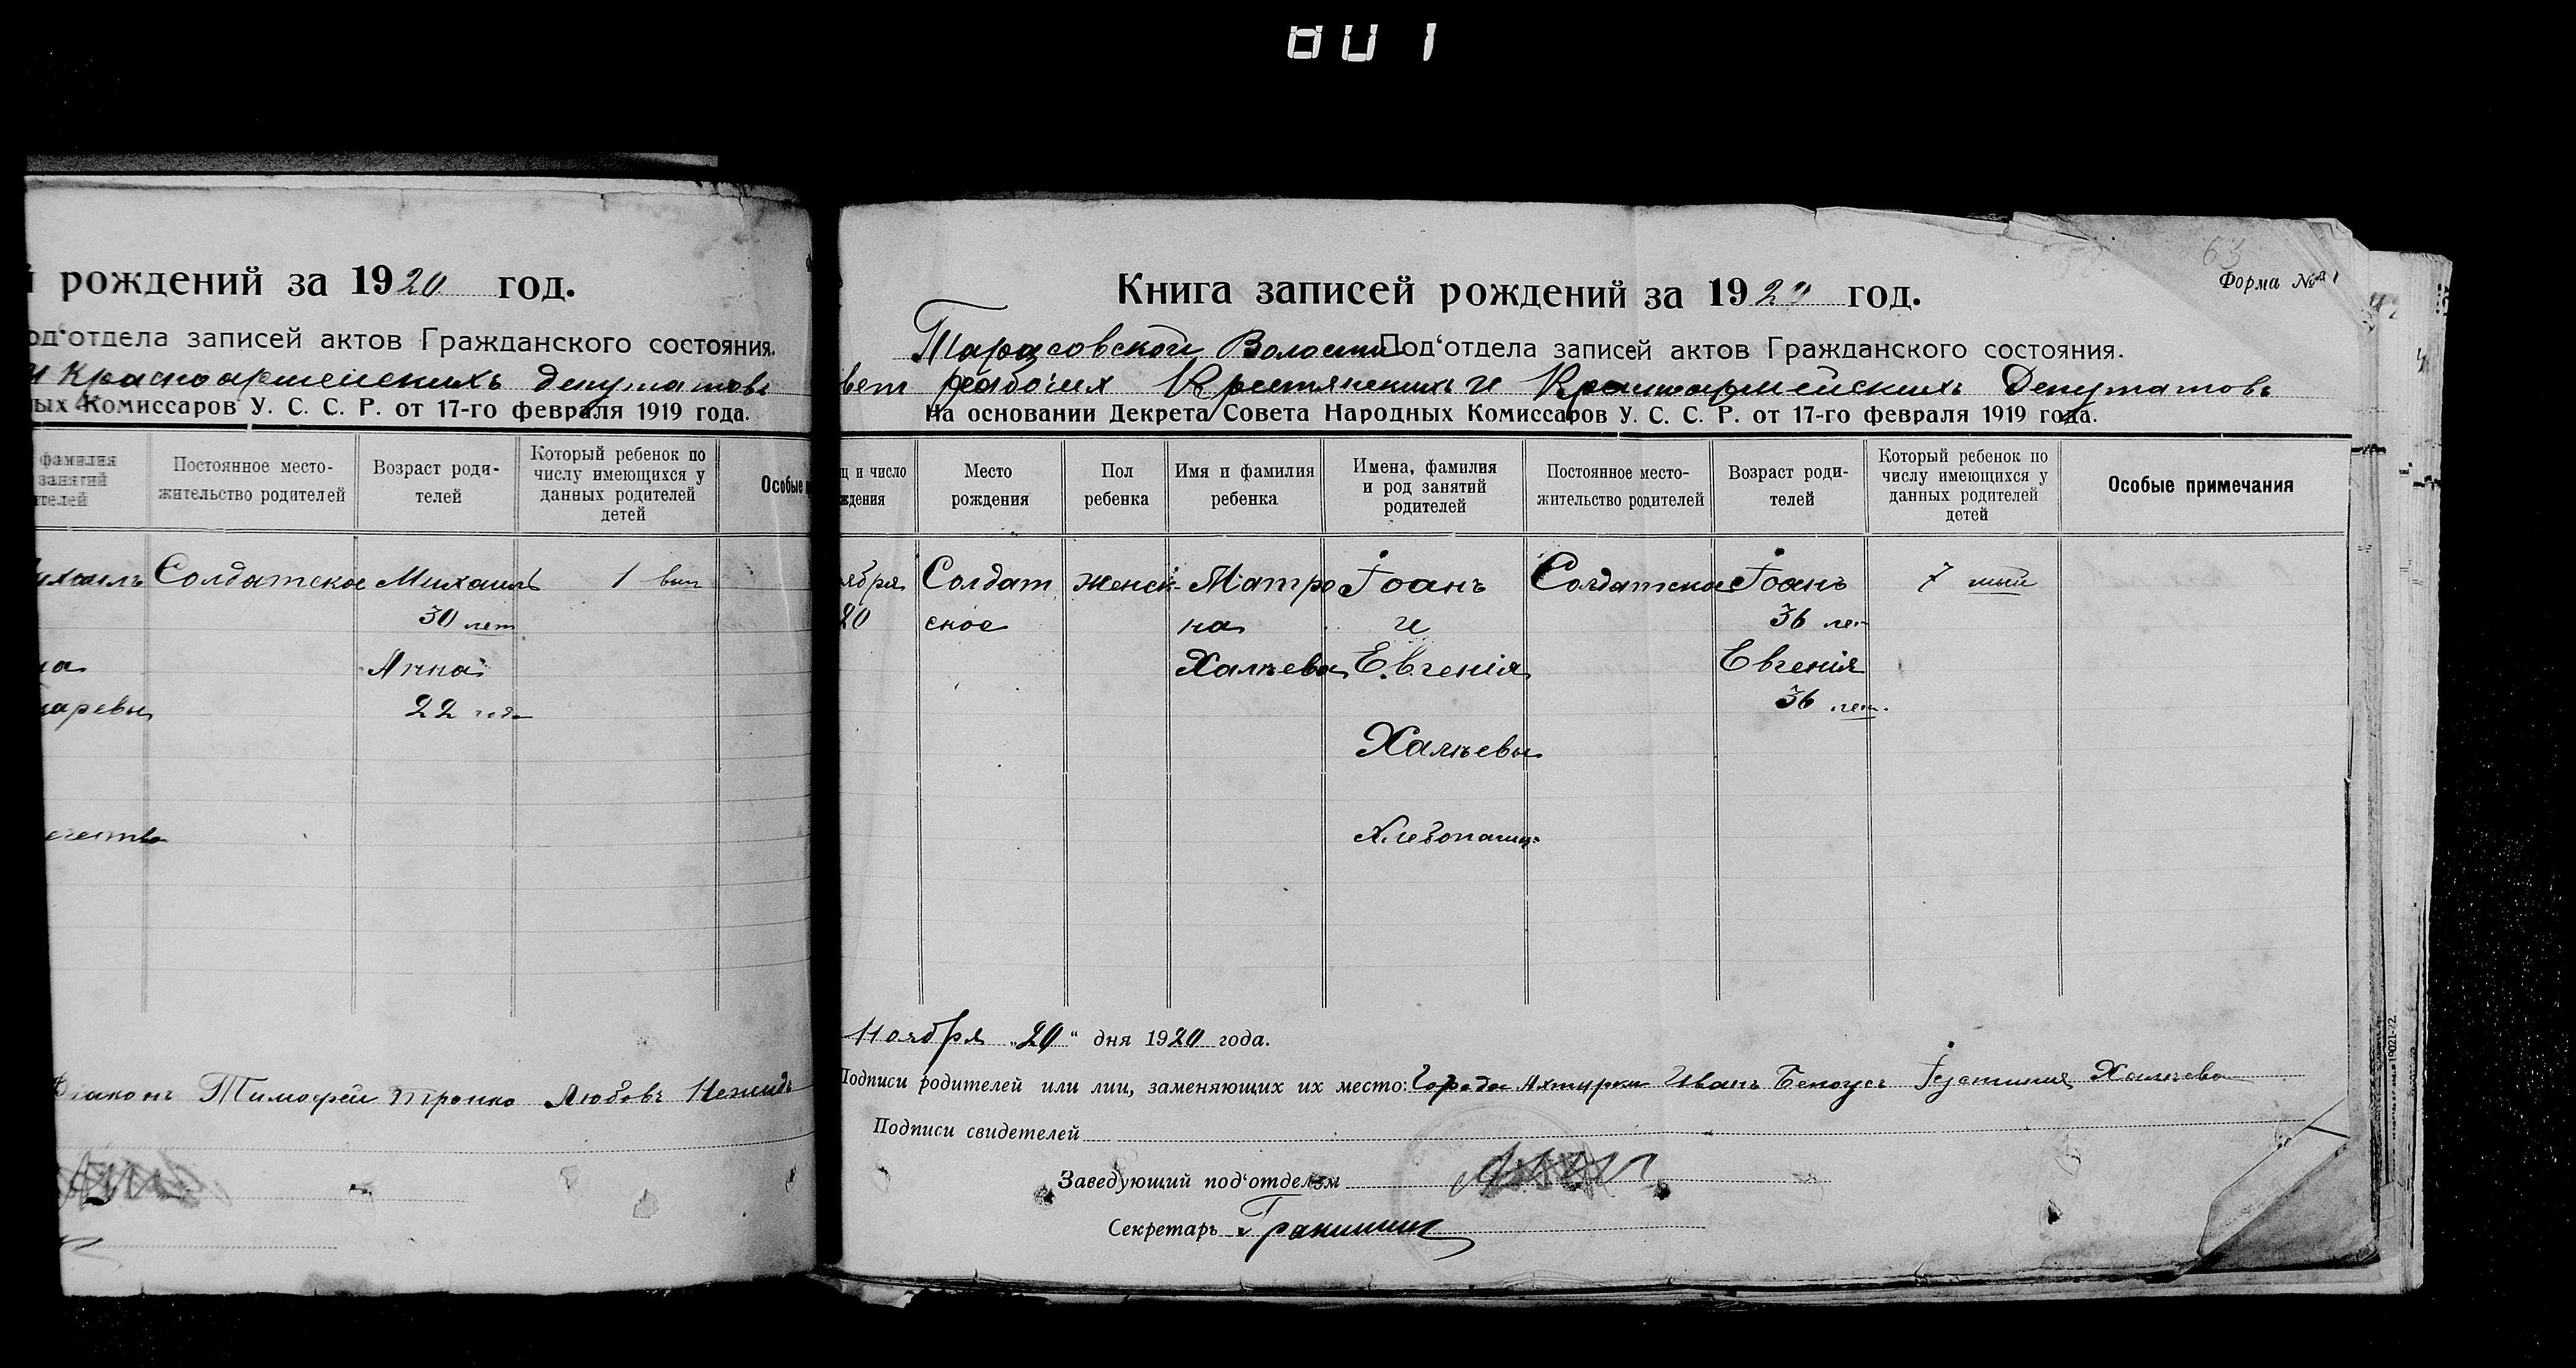 801
рождений за 1920 год.
од'отдела записей актов Гражданского состояния.
и Красноармейскихъ депутатовъ
ых Комиссаров У. С. С. Р. от 17-го февраля 1919 года.
фамилия
занятий
ителей
Постоянное место-
жительство родителей
Возраст роди-
телей
Который ребенок по
числу имеющихся у
данных родителей
детей
Особые
ихаилъ Солдатское Михаилъ 1 вый
30 лет
на Анна
аревы 22 года
Диаконъ Тимофей Любовь
63
Форма № 1
Книга записей рождений за 1920 год.
Тарасовской Волости Под'отдела записей актов Гражданского состояния.
вет рабочих Крестянскихъ и Красноармейскихъ Депутатовъ
На основании Декрета Совета Народных Комиссаров У. С. С. Р. от 17-го февраля 1919 года.
ц и число
ждения
Место
рождения
Пол
ребенка
Имя и фамилия
ребенка
Имена, фамилия
и род занятий
родителей
Постоянное место-
жительство родителей
Возраст роди-
телей
Который ребенок по
числу имеющихся у
данных родителей
детей
Особые примечания
ября Солдат женск Матро Іоанъ Солдатское Іоанъ 7 мый
20 ское на и 36 лет
Халъева Евгенія Евгенія
36 лет.
Халъевы
Хлебопашц.
Ноября „20“ дня 1920 года.
Подписи родителей или лиц, заменяющих их место: Города Ахтырки Иванъ Белоусъ Іустиния Халъева
Подписи свидетелей
Заведующий под'отделом
Секретарь
19021-22.